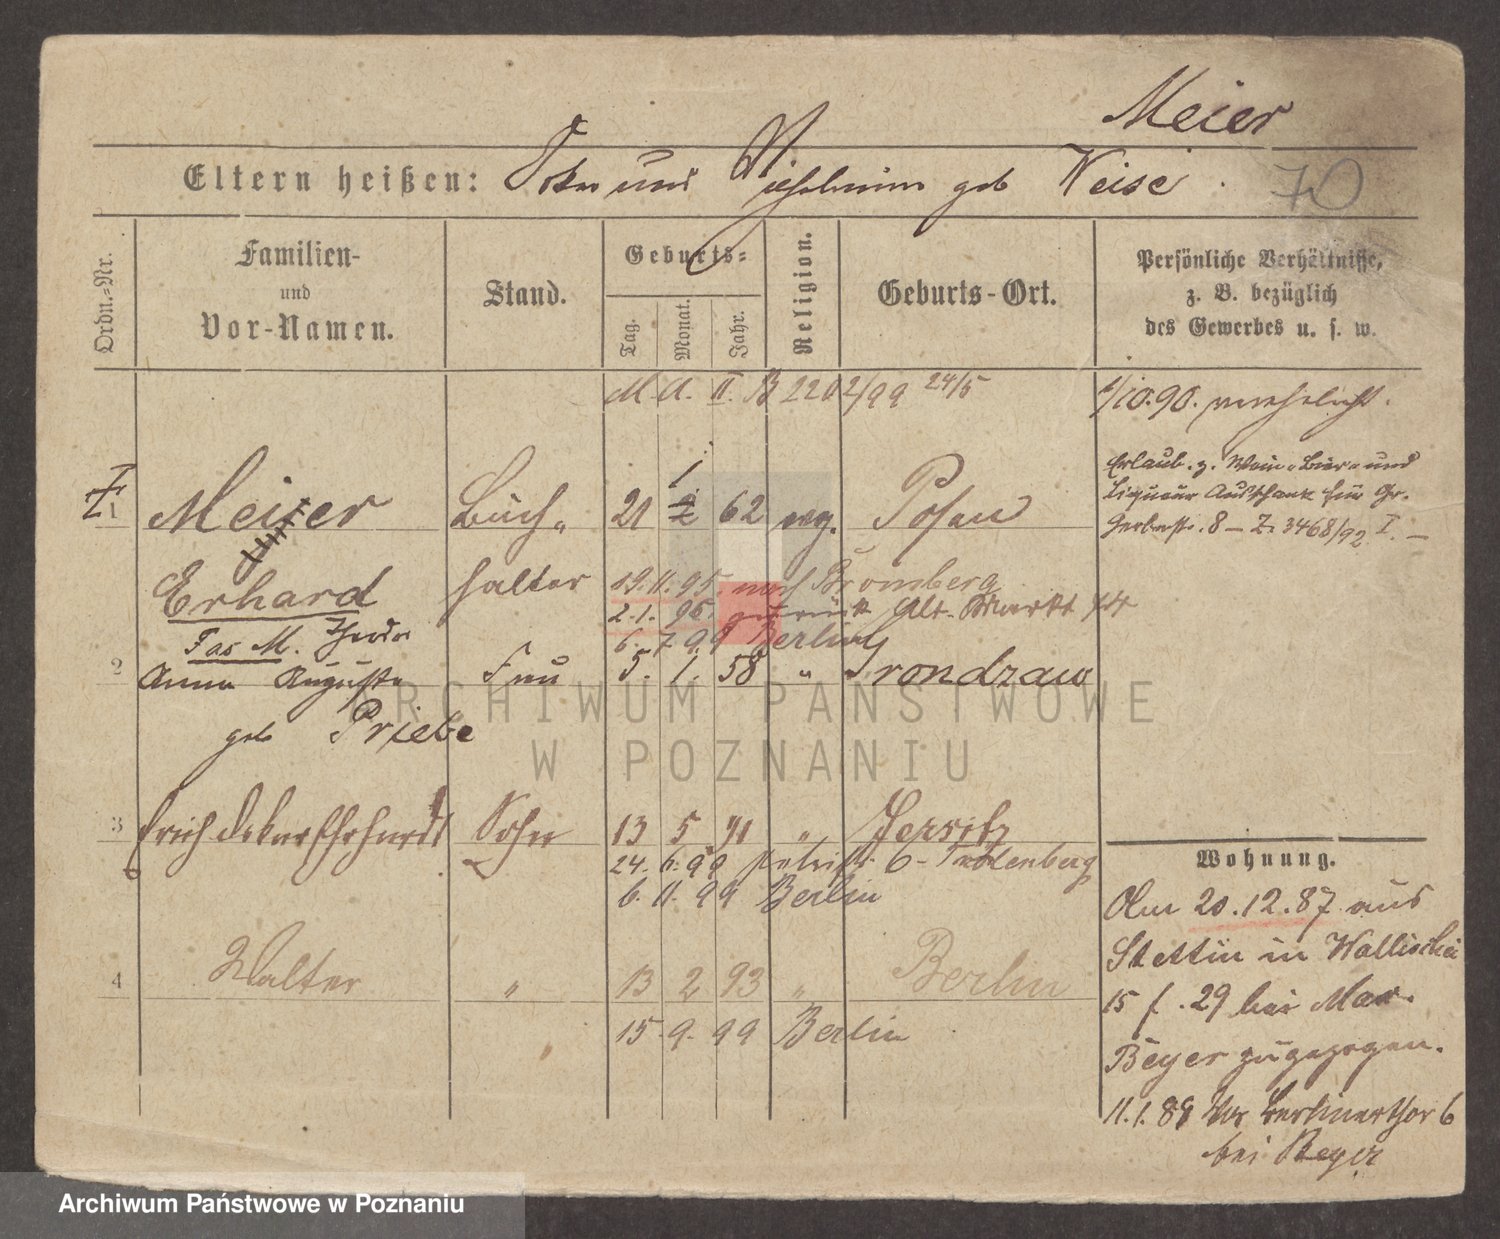 Meier
Eltern heißen: Oskar und Wilhelmine geb Weise.
70
Ordn.-Nr.
Familien-
und
Vor-Namen.
Stand.
Geburts-
Tag.
Monat.
Jahr.
Religion.
Geburts-Ort.
Persönliche Verhältnisse,
z. B. bezüglich
des Gewerbes u. s. w.
M. A. II. B 2202/99 24/5
1/10.90. verehelicht.
Erlaub. z. Wein- Bier- und
Liqueur Ausschank für Gr.
Gerberstr. 8 – Z. 3468/92 I. –
1
Meier
Buch-
21 1 62 evg. Posen
Erhard
halter
19. 11. 95. nach Bromberg
2. 1. 96. zurück Alt. Markt
Fas M.
6. 7. 99 Berlin
2
Anna Auguste
Frau
5. 1. 58 "
geb Priebe
3
Erich Oskar Ehrhardt
Sohn
13 5 91 " Jersitz
24. 6. 99 6
6. 11. 99 Berlin
4
Walter
"
13 2 93 " Berlin
15. 9. 99 Berlin
Wohnung.
Am 20.12.87 aus
Stettin in Wallischei
15 f. 29 bei Max.
Beyer zugezogen.
11.1.88 Vor Berlinerthor 6
bei Beyer
ARCHIWUM PAŃSTWOWE
W POZNANIU
Archiwum Państwowe w Poznaniu